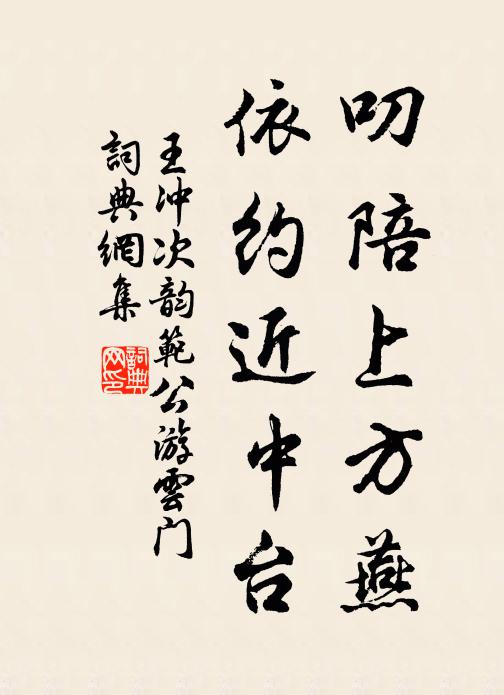 叨陪上方燕
依约近中台
王冲次韵範公游雲门
詞典網集
詞典网印